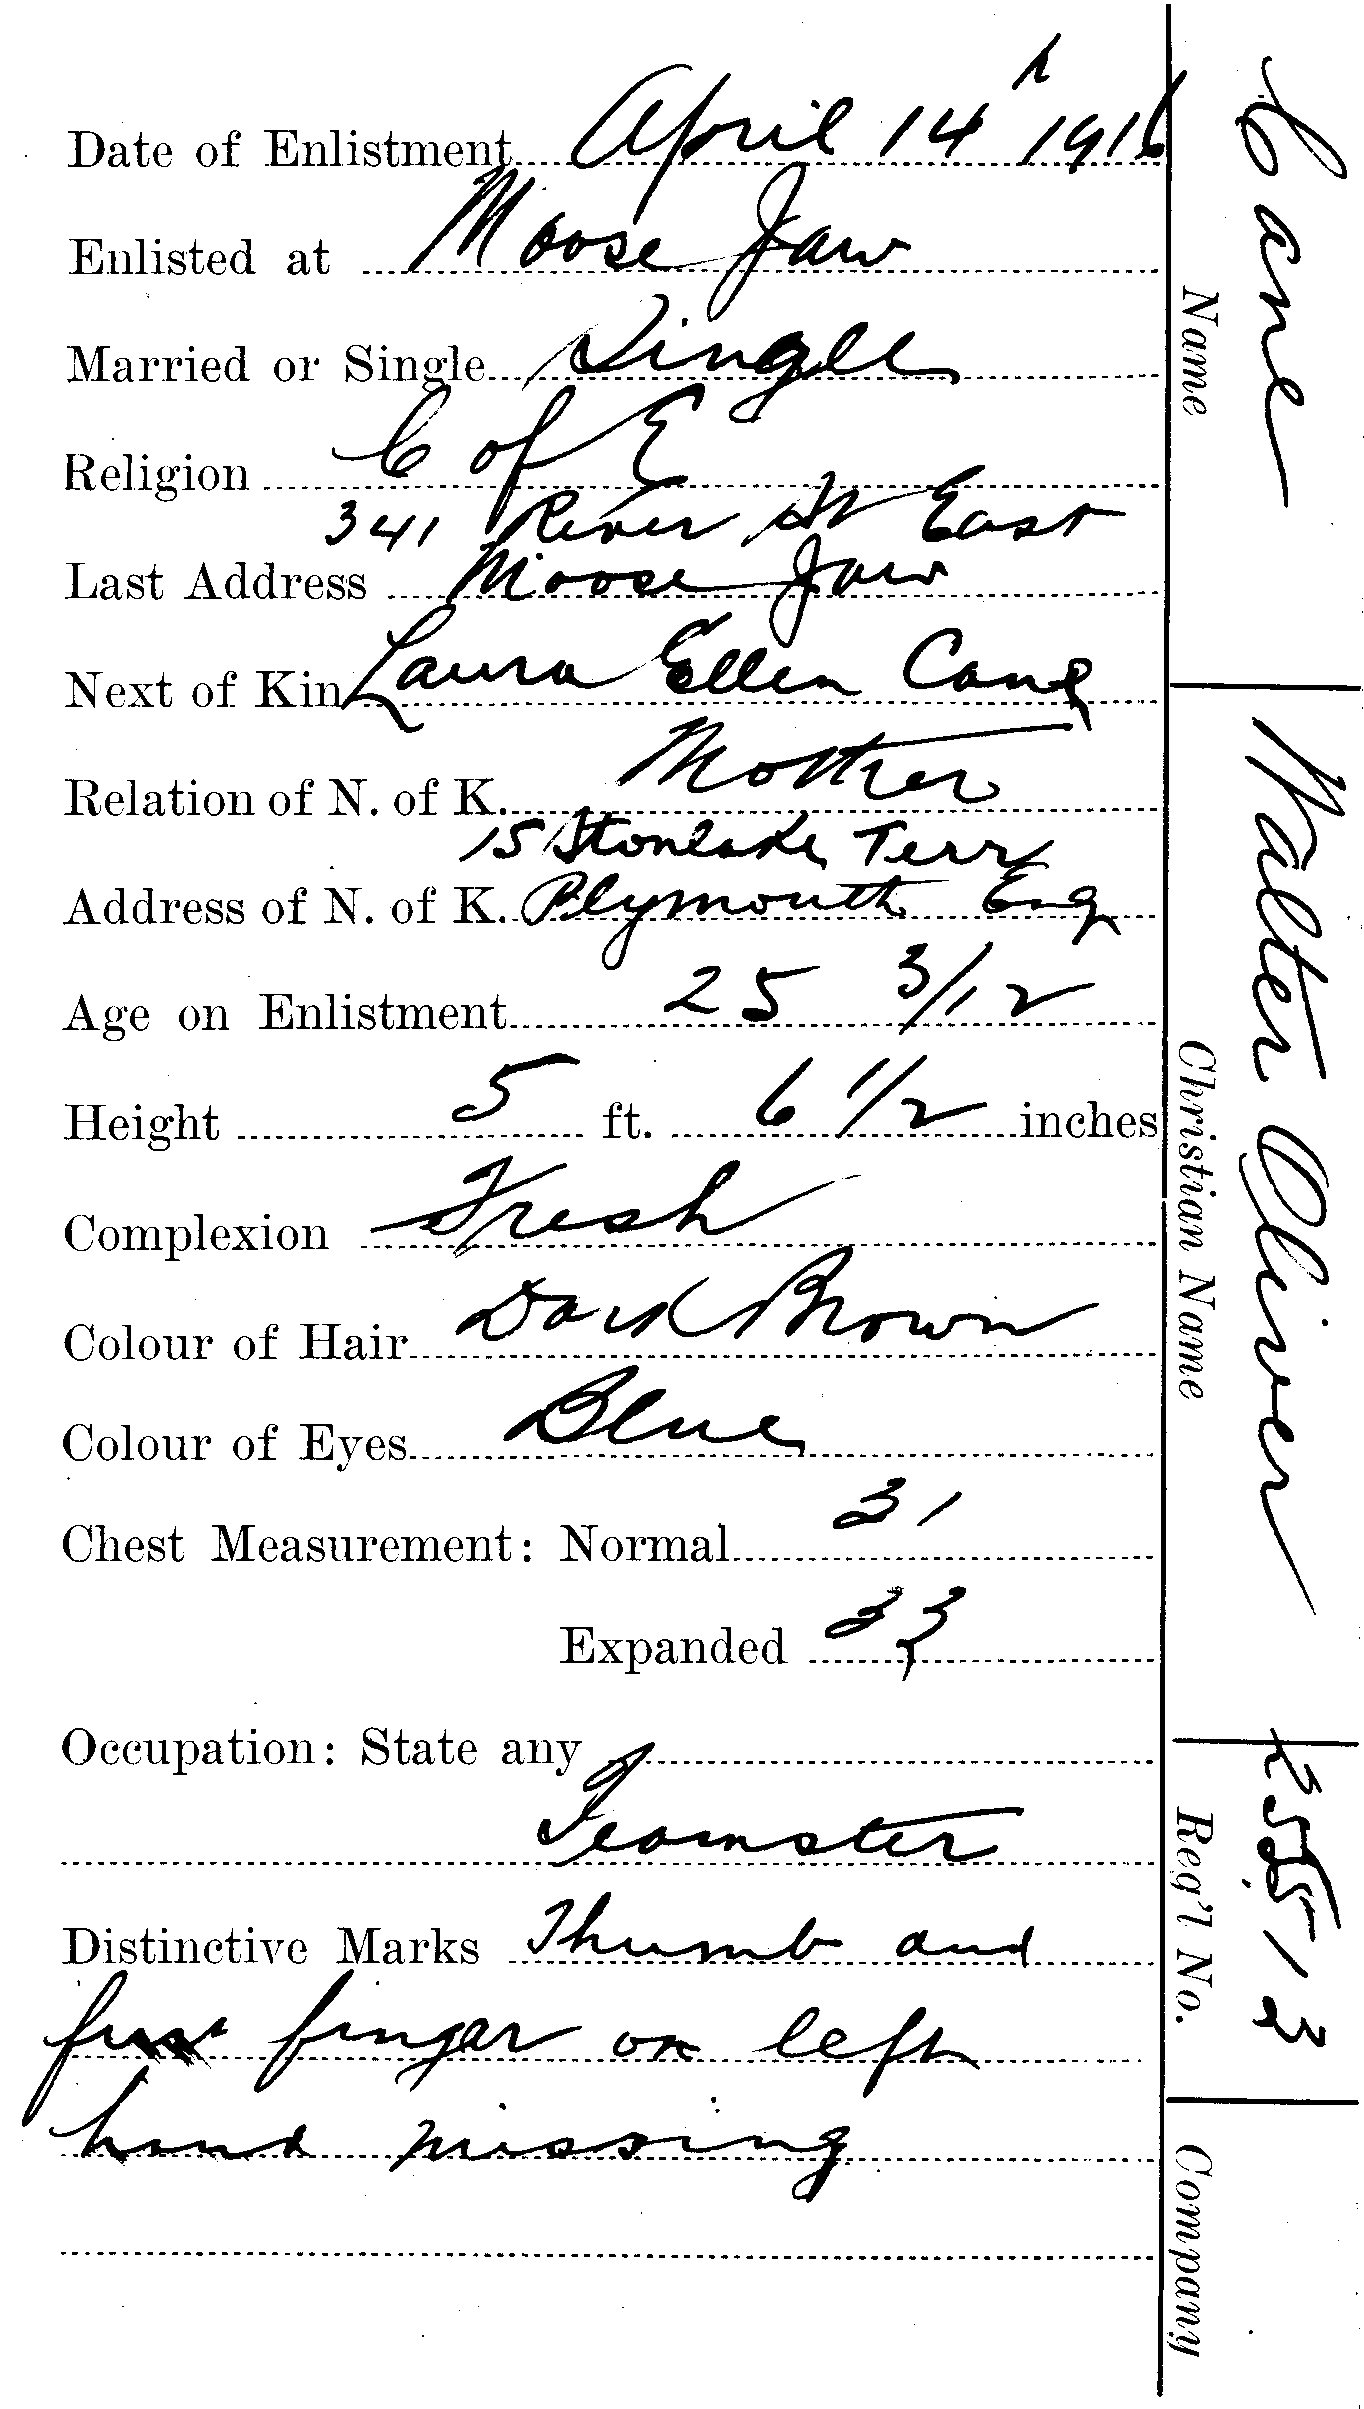 Date of Enlistment April 14 h 1916
Enlisted at Moose Jaw
Married or Single Single
Religion C of E
341 River St East
Last Address Moose Jaw
Next of Kin Laura Ellen Cane
Relation of N. of K. Mother
15 Stonlake Terr
Address of N. of K. Plymouth Eng
Age on Enlistment 25 3/12
Height 5 ft. 6 1/2 inches
Complexion Fresh
Colour of Hair Dark Brown
Colour of Eyes Blue
Chest Measurement: Normal 31
Expanded 33
Occupation: State any
Teamster
Distinctive Marks Thumb and
first finger on left
hand missing
Cane
Name
Walter Oliver
Christian Name
255513
Reg'l No.
Company